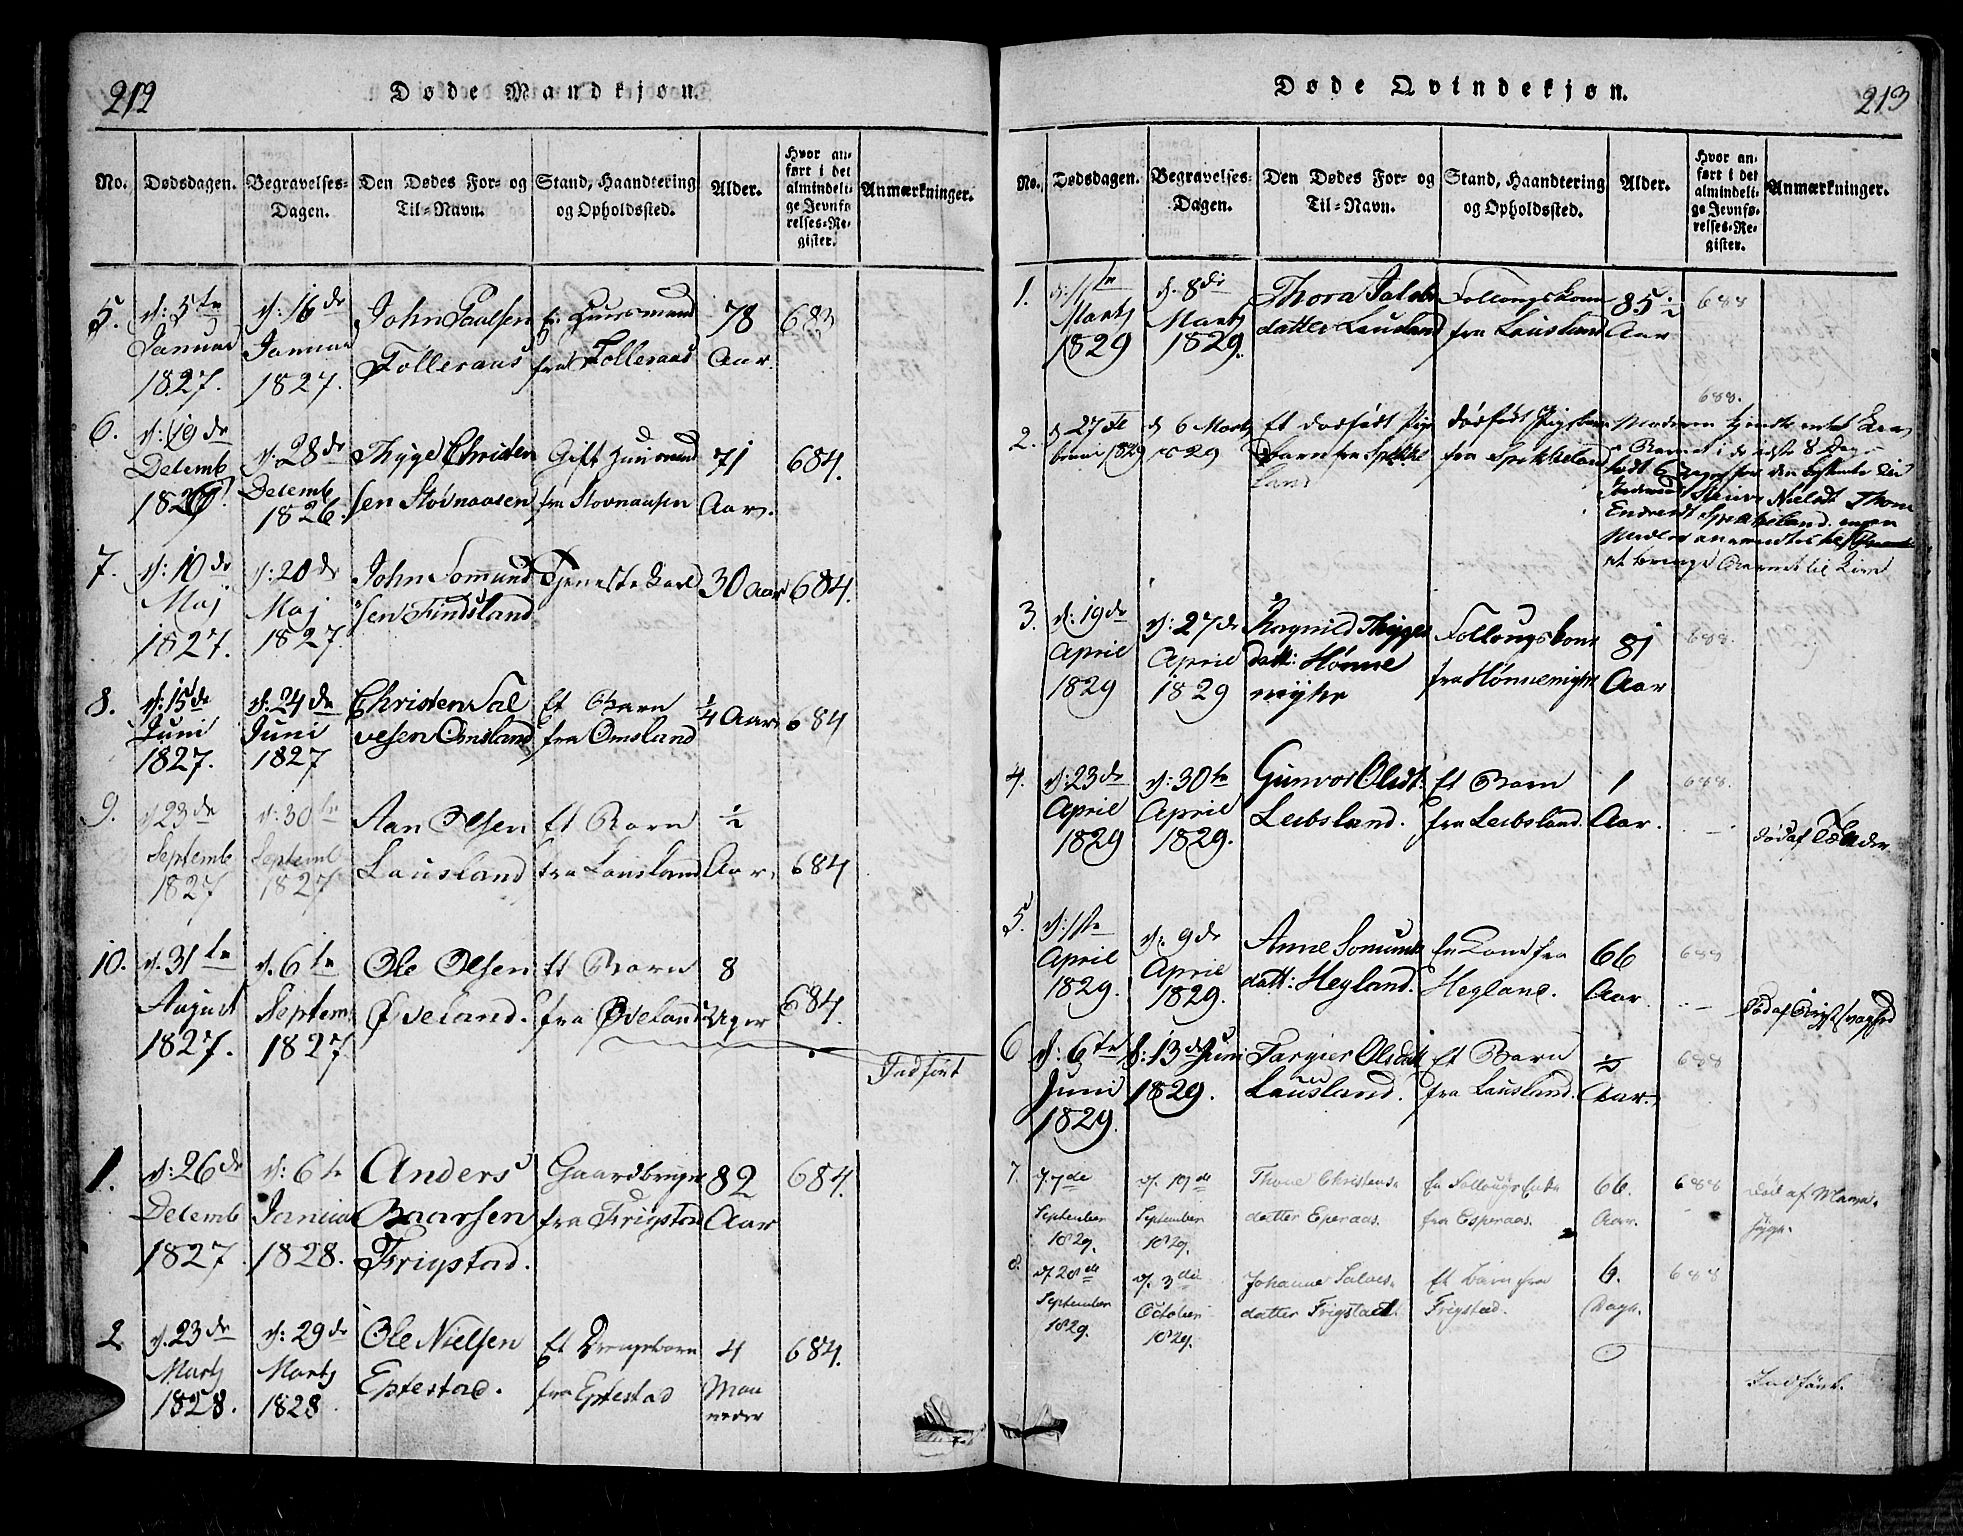 212
Døde Mandkjøn.
No.
Dødsdagen.
Begravelses-
Dagen.
Den Dødes For- og
Til-Navn.
Stand, Haandtering
og Opholdssted.
Alder.
Hvor an-
ført i det
almindeli-
ge Jevnfø-
relses-Re-
gister.
Anmærkninger.
5.
d: 5te
Januar
1827.
d: 16de
Januar
1827.
John Paulsen
Tolleraas
Huusmand
fra Tolleraas
78
Aar.
683
6.
d: 19de
Decemb
1826
d: 28de
Decemb
1826.
Thyge Christen
sen Stovnaasen
Gift Huusmand
fra Stovnaasen
71
Aar.
684.
7.
d: 10de
Maj
1827.
d: 20de
Maj
1827.
John Somund
sen Findsland
Tjeneste Karl
30 Aar
684.
8.
d: 15de
Juni
1827.
d: 24de
Juni
1827
Christen Sal
vesen Omsland
Et Barn
fra Omsland
1/4 Aar
684
9.
d 23de
Septemb
1827
d: 30te
Septemb
1827.
Aan Olsen
Lausland
Et Barn
fra Lausland
1/2
Aar.
684
10.
d. 31te
August
1827.
d. 6te
Septem
1827
Ole Olsen
Øveland.
Et Barn
fra Øveland
8
Uger
684.
Indført
1.
d: 26de
Decemb
1827.
d: 6te
Januar
1828.
Anders
Baarsen
Frigstad.
Gaardbruger
fra Frigstad
82
Aar
684.
2
d. 23de
Martz
1828.
d: 29de
Martz
1828
Ole Nielsen
Eptestad.
Et Drengebarn
fra Eptestad
4
Maa
neder
684.
213
Døde Qvindekjøn.
No.
Dødsdagen.
Begravelses-
Dagen.
Den Dødes For- og
Til-Navn.
Stand, Haandtering
og Opholdssted.
Alder.
Hvor an-
ført i det
almindeli-
ge Jevnfø-
relses-Re-
gister.
Anmærkninger.
1.
d: 1te
Martz
1829
d. 8de
Martz
1829.
Thora Jacobs
datter Lausland
Follougskone
fra Lausland
85 1/2
Aar
688
2.
d 27de
1829
d 6 Martz
1829
Et dødfødt Pige
Barn fra Spikke
land
dødfødt Pigebarn
fra Spikkeland
688.
Moderen kjendte
Barnet i de sidste 8 Dage
Nielsdt
Spikkeland.
at bringe Barnet til Live
3.
d. 19de
April
1829
d: 27de
April
1829
Ragnild Thyges
datt: Hønne
myhr
Follougskone
fra Hønnemyhr
81
Aar
688.
4.
d: 23de
April
1829
d: 30te
April
1829.
Gunvor Olsdt.
Leibsland.
Et Barn
fra Leibsland.
1
Aar.
688.
død af
5.
d: 1ste
April
1829.
d. 9de
April
1829.
Anne Somunds
datt: Hegland.
En Kone fra
Hegland.
66
Aar.
688
Død af Brystsvaghed
6
d. 6te
Juni
1829.
d: 13de Juni
1829.
Targier Olsdatt
Lausland.
Et Barn
fra Lausland.
1/2
Aar.
688
7.
d. 7de
September
1829.
d. 19de
September
1829.
Thone Christens-
datter Eperaas.
En Follougs Enke
fra Esperaas.
66.
Aar.
688
død af
8.
d. 28de
September
1829.
d. 3die
October
1829.
Johanne Salves-
datter Frigstad.
Et Barn fra
Frigstad.
6.
Dage.
688
Indført.